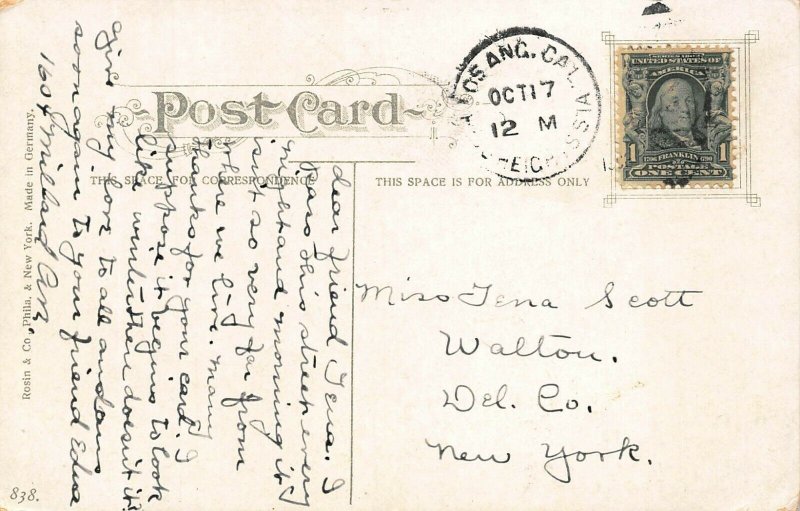 Post Card
THIS SPACE FOR CORRESPONDENCE
THIS SPACE IS FOR ADDRESS ONLY
LOS ANG. CAL.
OCT 17
12 M
SERIES 1902
UNITED STATES OF
AMERICA
1 1706 FRANKLIN 1790 1
POSTAGE
ONE CENT
Miss Tena Scott
Walton.
Del. Co.
New York.
dear friend Tena. I
pass this street every
night and morning it
isn't so very far from
where we live. many
thanks for your card. I
suppose it begins to look
like winter there doesn't it?
give my love to all and ans
soon again to your friend Edna
1604 Millard Ave.
Rosin & Co. Phila. & New York. Made in Germany.
838.